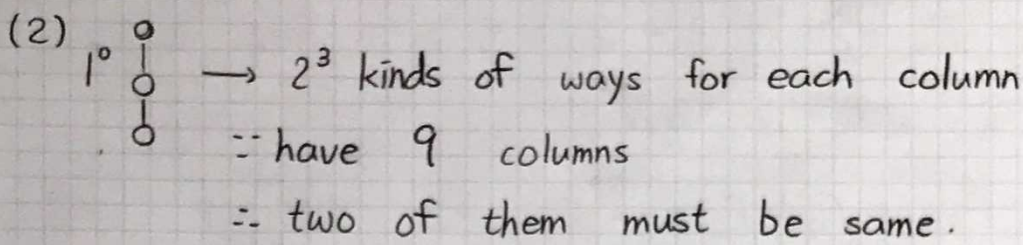 (2)
1° → 2³ kinds of ways for each column
∵ have 9 columns
∴ two of them must be same.